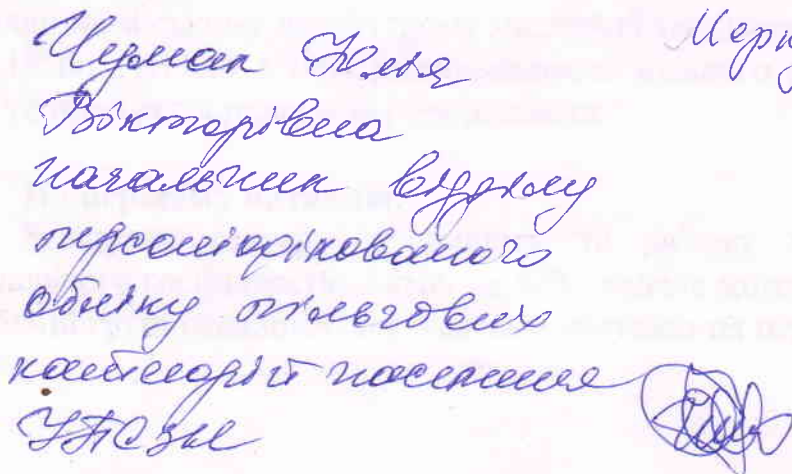 Чумак Юлія
Вікторівна
начальник відділу
персоніфікованого
обліку пільгових
категорій населення
УПСЗН